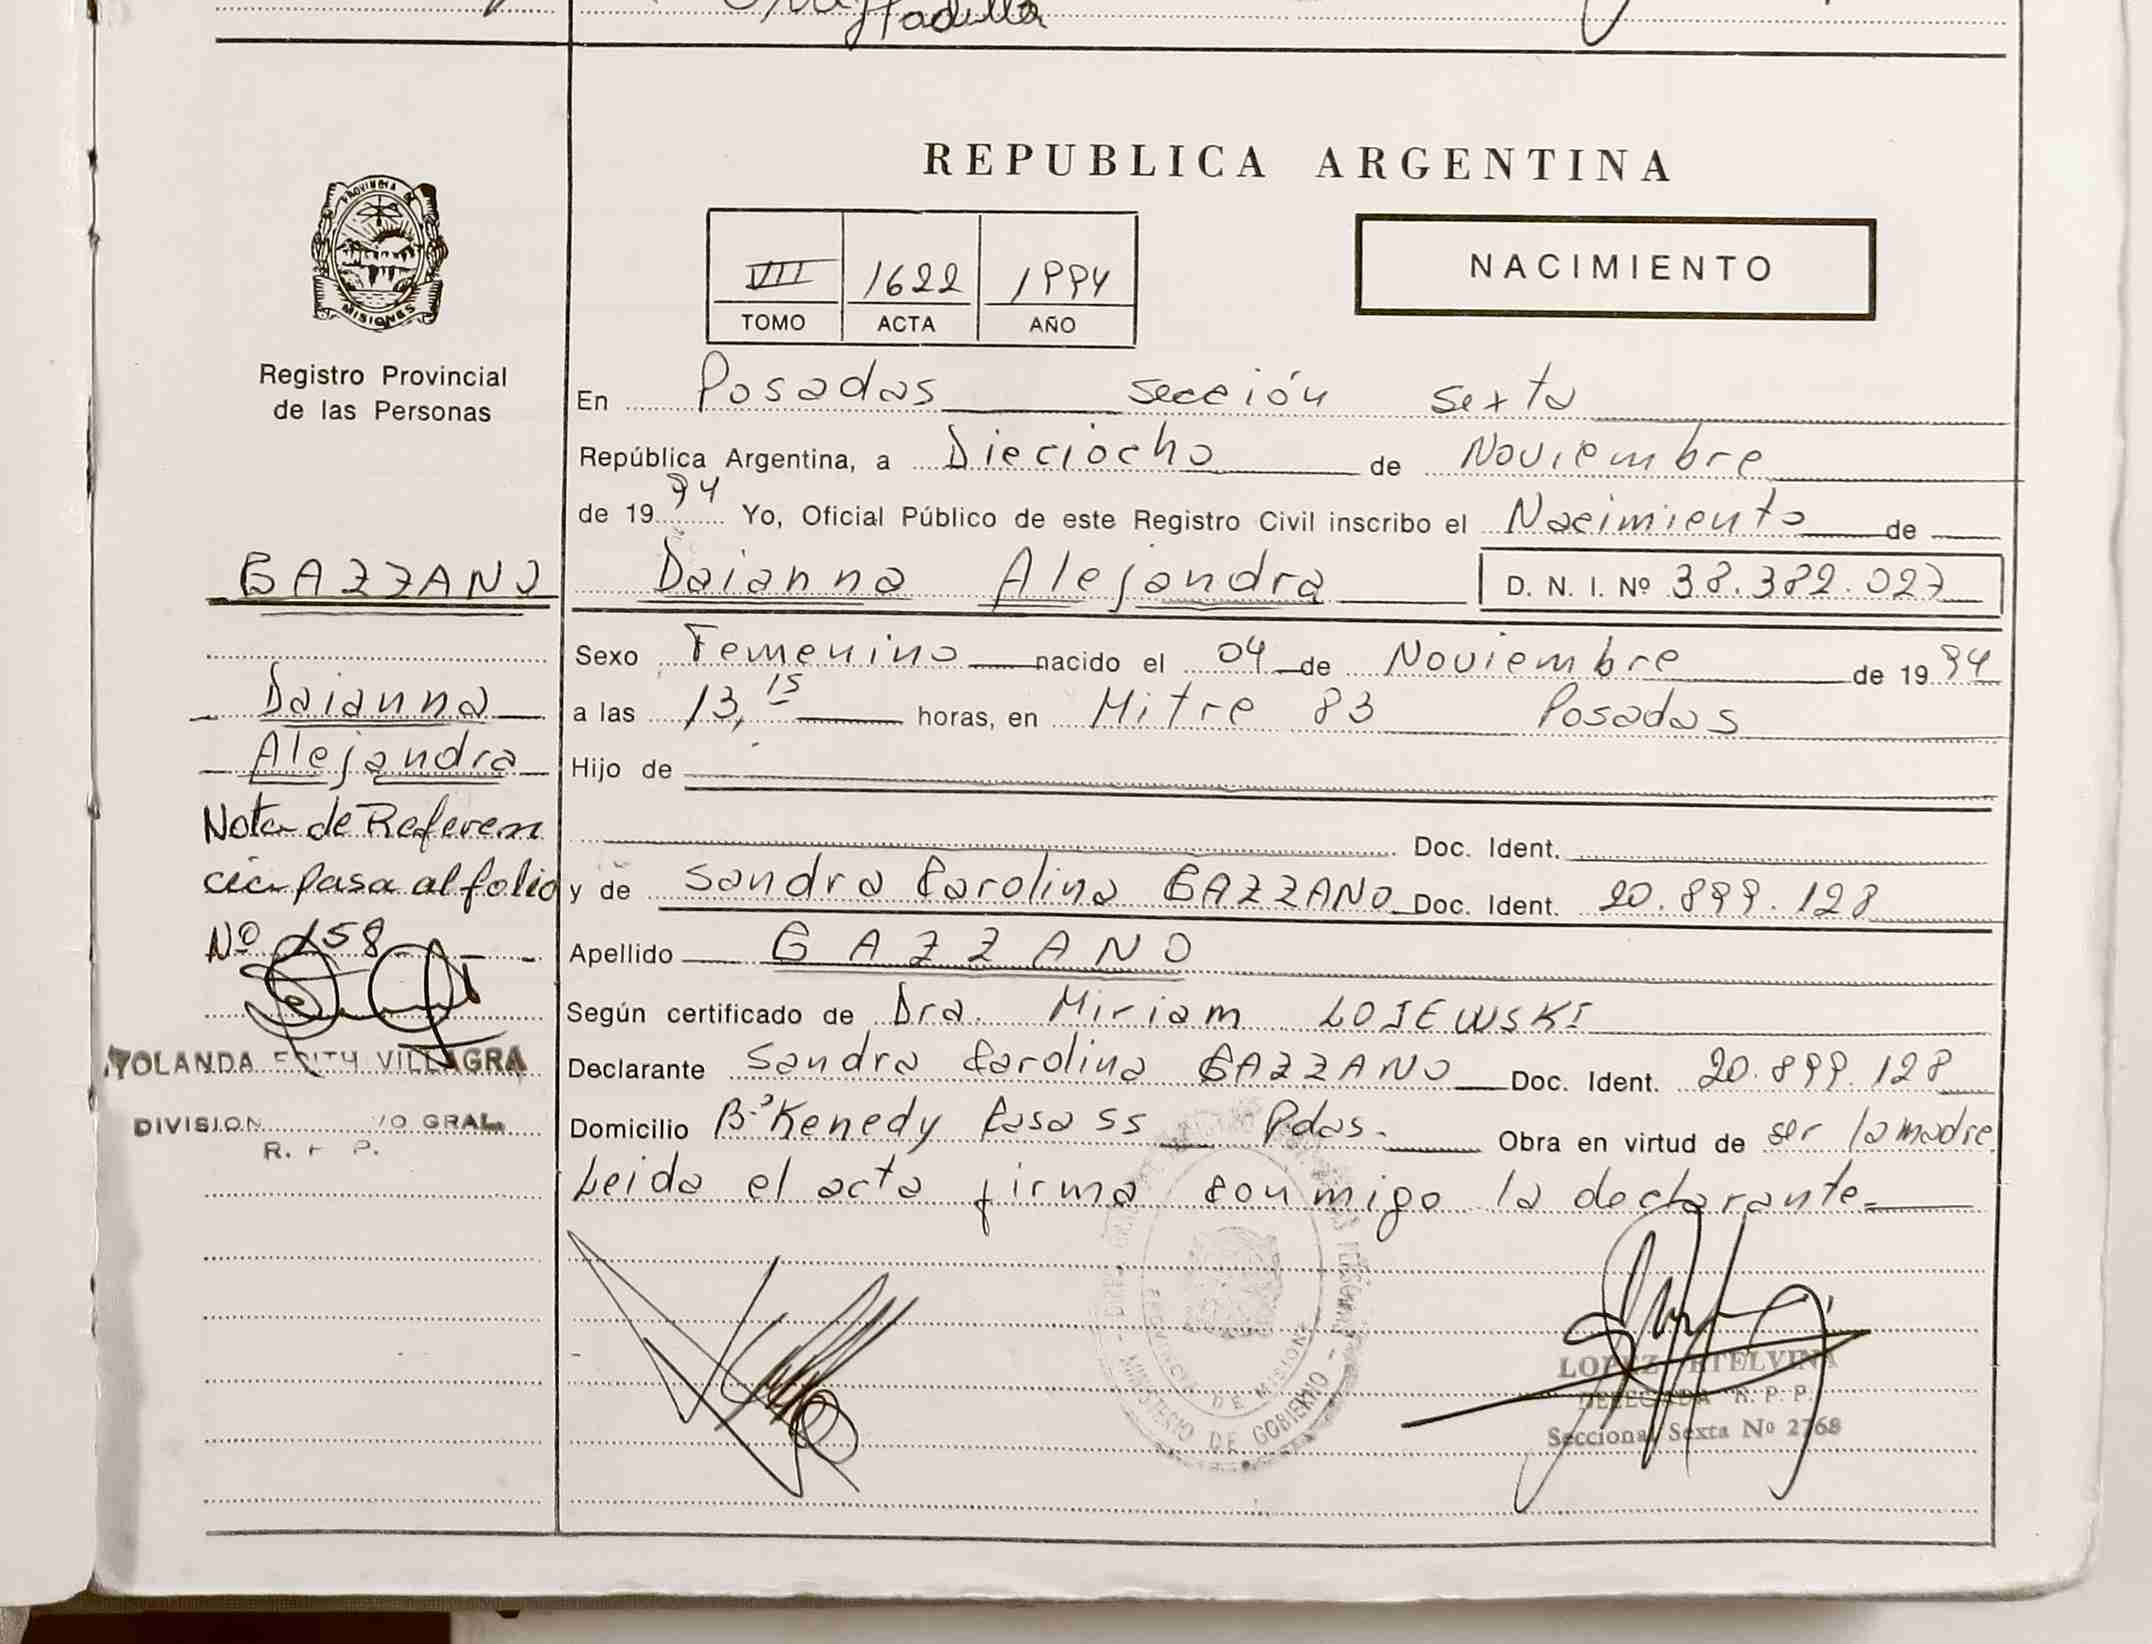 Padilla
PROVINCIA DE
MISIONES
Registro Provincial
de las Personas
REPUBLICA ARGENTINA
VII 1622 1994
TOMO ACTA AÑO
NACIMIENTO
En Posadas sección sexta
República Argentina, a Dieciocho de Noviembre
de 1994 Yo, Oficial Público de este Registro Civil inscribo el Nacimiento de
GAZZANO
Daianna Alejandra D. N. I. Nº 38.382.027
Sexo Femenino nacido el 04 de Noviembre de 1994
Daianna
a las 13,15 horas, en Mitre 83 Posadas
Alejandra
Hijo de
Nota de Referen
Doc. Ident.
cia pasa al folio
y de Sandra Carolina GAZZANO Doc. Ident. 20.899.128
Nº 158
Apellido GAZZANO
Según certificado de Dra. Miriam LOJEWSKI
YOLANDA EDITH VILLAGRA
Declarante Sandra Carolina GAZZANO Doc. Ident. 20.899.128
DIVISION GRAL.
R. P.
Domicilio Bº Kenedy Casa 55 Pdas. Obra en virtud de ser la madre
Leida el acta firma conmigo la declarante.
PROVINCIA DE MISIONES
MINISTERIO DE GOBIERNO
LOPEZ ETELVINA
DELEGADA R. P. P.
Seccional Sexta Nº 2768